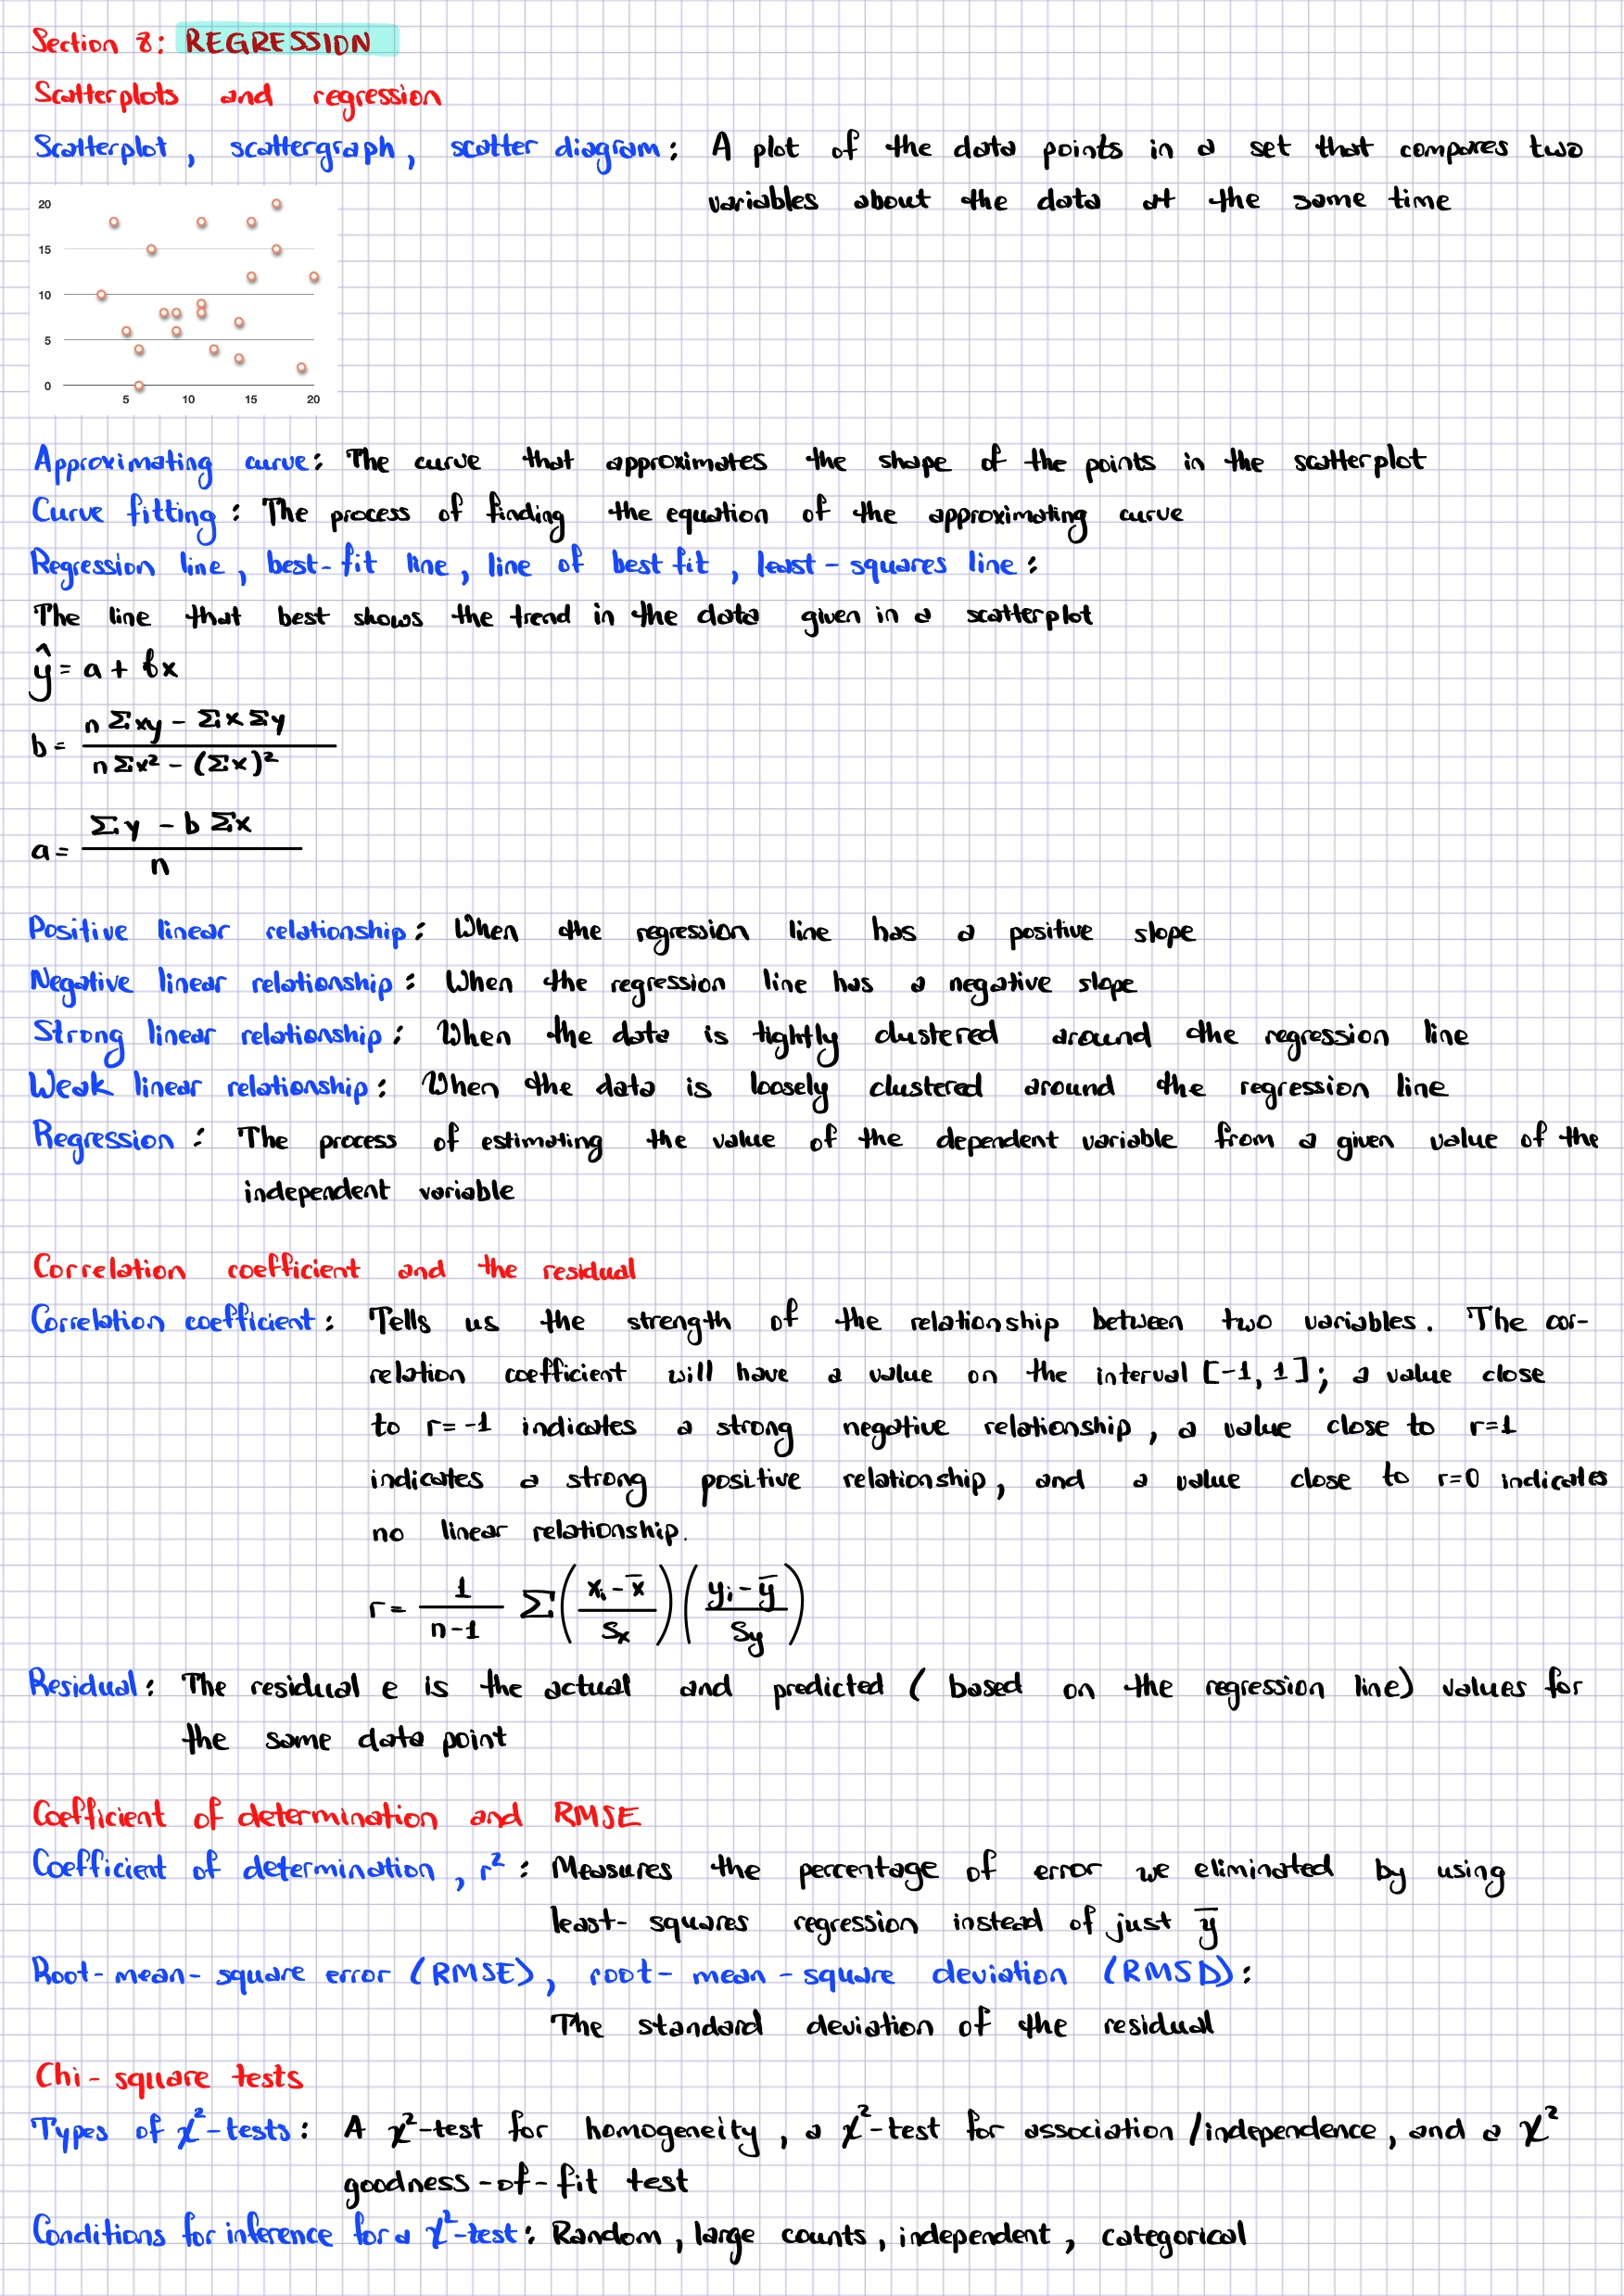 Section 8: REGRESSION
Scatterplots and regression
Scatterplot, scattergraph, scatter diagram: A plot of the data points in a set that compares two
variables about the data at the same time
20
15
10
5
0
5 10 15 20
Approximating curve: The curve that approximates the shape of the points in the scatterplot
Curve fitting: The process of finding the equation of the approximating curve
Regression line, best-fit line, line of best fit, least-squares line:
The line that best shows the trend in the data given in a scatterplot
ŷ = a + bx
b = (n Σxy - Σx Σy) / (n Σx² - (Σx)²)
a = (Σy - b Σx) / n
Positive linear relationship: When the regression line has a positive slope
Negative linear relationship: When the regression line has a negative slope
Strong linear relationship: When the data is tightly clustered around the regression line
Weak linear relationship: When the data is loosely clustered around the regression line
Regression: The process of estimating the value of the dependent variable from a given value of the
independent variable
Correlation coefficient and the residual
Correlation coefficient: Tells us the strength of the relationship between two variables. The cor-
relation coefficient will have a value on the interval [-1, 1]; a value close
to r=-1 indicates a strong negative relationship, a value close to r=1
indicates a strong positive relationship, and a value close to r=0 indicates
no linear relationship.
r = 1/(n-1) Σ((xᵢ - x̄)/Sx)((yᵢ - ȳ)/Sy)
Residual: The residual e is the actual and predicted (based on the regression line) values for
the same data point
Coefficient of determination and RMSE
Coefficient of determination, r²: Measures the percentage of error we eliminated by using
least-squares regression instead of just ȳ
Root-mean-square error (RMSE), root-mean-square deviation (RMSD):
The standard deviation of the residual
Chi-square tests
Types of χ²-tests: A χ²-test for homogeneity, a χ²-test for association/independence, and a χ²
goodness-of-fit test
Conditions for inference for a χ²-test: Random, large counts, independent, categorical